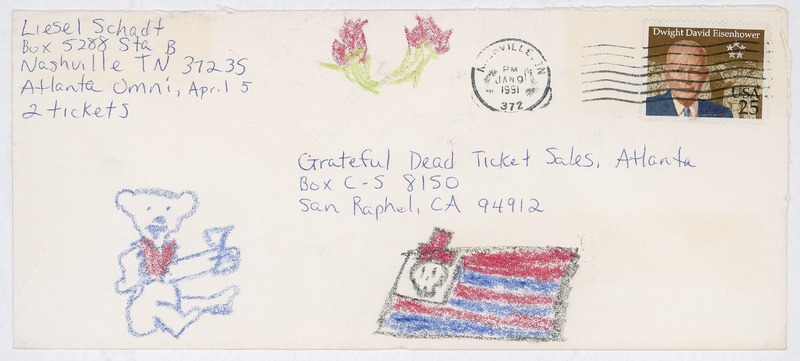 Liesel Schadt
Box 5288 Sta B
Nashville TN 37235
Atlanta Omni, April 5
2 tickets
NASHVILLE, TN
PM
JAN 9
1991
372
Dwight David Eisenhower
USA
25
Grateful Dead Ticket Sales, Atlanta
Box C-S 8150
San Raphel, CA 94912